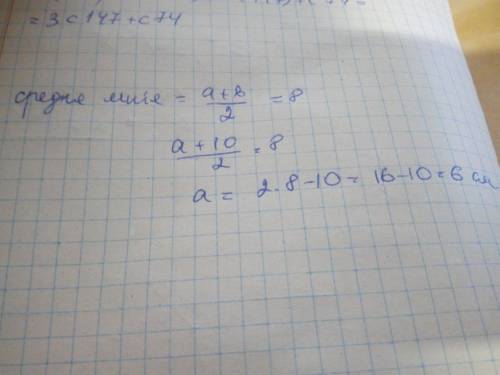 = 3c147+c74
средня лінія = a+b/2 = 8
a+10/2 = 8
a = 2·8-10= 16-10=6 см